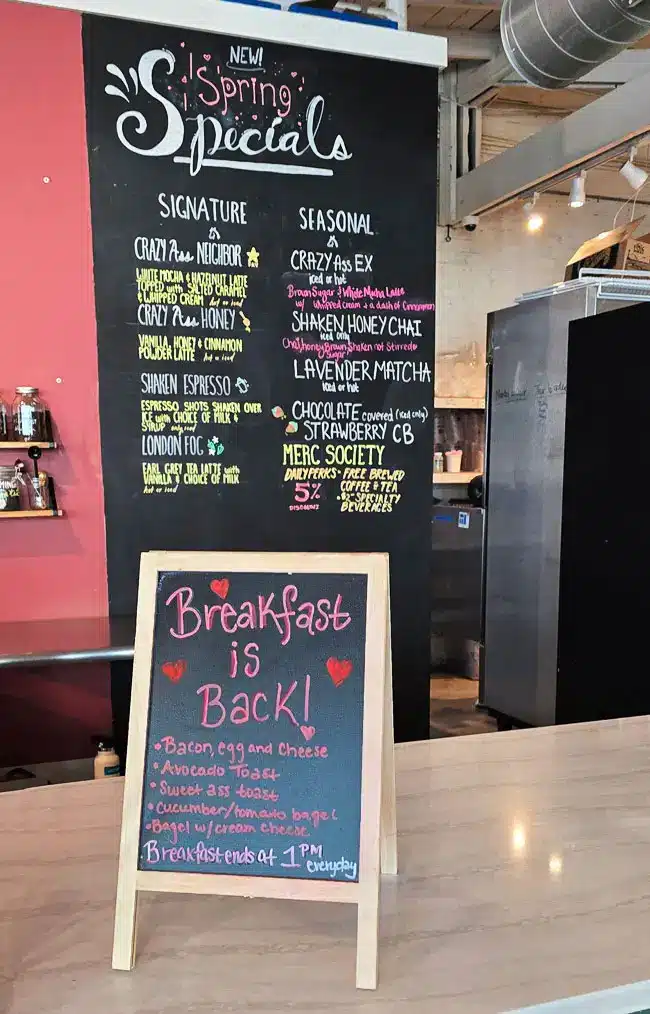 NEW!
Spring
Specials
SIGNATURE
CRAZY Ass NEIGHBOR
WHITE MOCHA & HAZELNUT LATTE
TOPPED with SALTED CARAMEL
& WHIPPED CREAM hot or iced
CRAZY Ass HONEY
VANILLA, HONEY & CINNAMON
POWDER LATTE hot or iced
SHAKEN ESPRESSO
ESPRESSO SHOTS SHAKEN OVER
ICE with CHOICE OF MILK &
SYRUP only iced
LONDON FOG
EARL GREY TEA LATTE with
VANILLA & CHOICE OF MILK
hot or iced
SEASONAL
CRAZY Ass EX
iced or hot
Brown Sugar & White Mocha Latte
w/ whipped cream + a dash of Cinnamon
SHAKEN HONEY CHAI
iced only
Chai, honey, Brown Sugar Shaken not Stirred
LAVENDER MATCHA
iced or hot
CHOCOLATE covered (iced only)
STRAWBERRY CB
MERC SOCIETY
DAILY PERKS - FREE BREWED
COFFEE & TEA
5%
DISCOUNT
•$2- SPECIALTY
BEVERAGES
Breakfast
is
Back!
•Bacon, egg and cheese
•Avocado Toast
•Sweet ass toast
•Cucumber/tomato bagel
•Bagel w/cream cheese
Breakfast ends at 1 PM
everyday